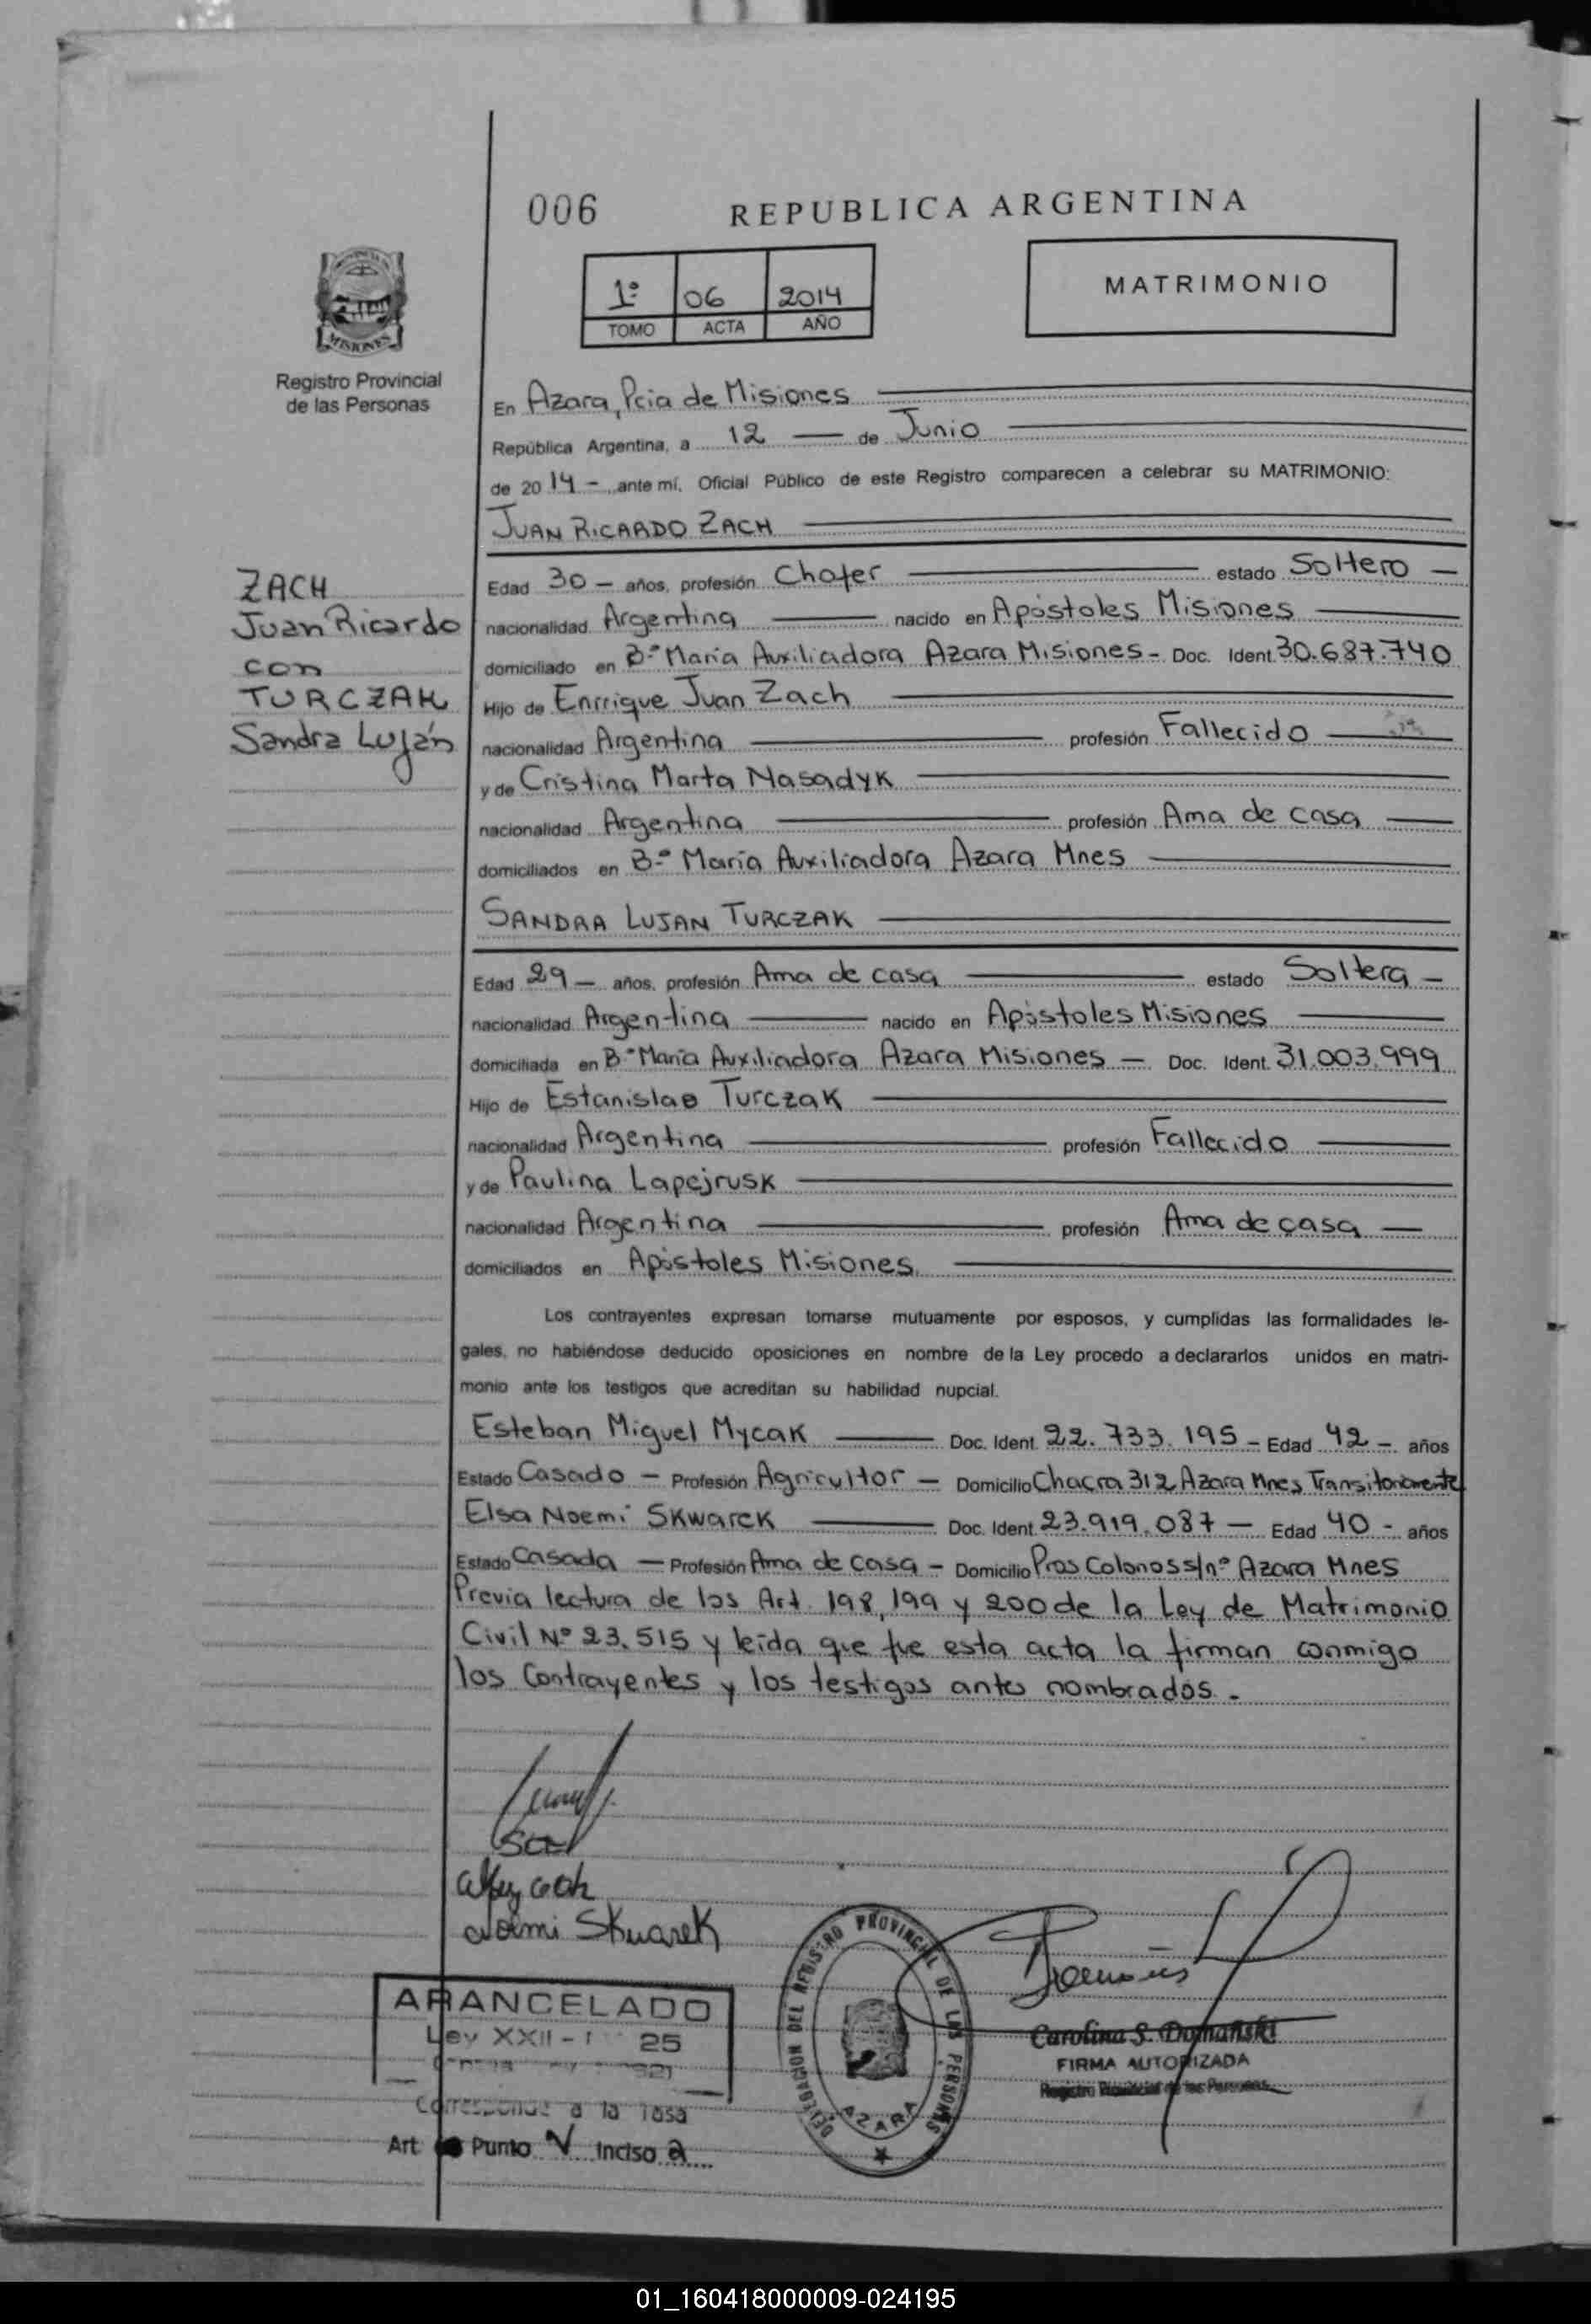 006
REPUBLICA ARGENTINA
1º 06 2014
TOMO ACTA AÑO
MATRIMONIO
MISIONES
Registro Provincial
de las Personas
En Azara, Pcia de Misiones
República Argentina, a 12 — de Junio
de 2014 - ante mí, Oficial Público de este Registro comparecen a celebrar su MATRIMONIO:
JUAN RICARDO ZACH
ZACH
Juan Ricardo
con
TURCZAK
Sandra Luján
Edad 30 — años, profesión Chofer estado Soltero —
nacionalidad Argentina nacido en Apóstoles Misiones
domiciliado en Bº María Auxiliadora Azara Misiones - Doc. Ident. 30.687.740
Hijo de Enrrique Juan Zach
nacionalidad Argentina profesión Fallecido
y de Cristina Marta Nasadyk
nacionalidad Argentina profesión Ama de casa
domiciliados en Bº María Auxiliadora Azara Mnes
SANDRA LUJAN TURCZAK
Edad 29 — años, profesión Ama de casa estado Soltera —
nacionalidad Argentina nacido en Apóstoles Misiones
domiciliada en Bº María Auxiliadora Azara Misiones — Doc. Ident. 31.003.999
Hijo de Estanislao Turczak
nacionalidad Argentina profesión Fallecido
y de Paulina Lapejrusk
nacionalidad Argentina profesión Ama de casa —
domiciliados en Apóstoles Misiones.
Los contrayentes expresan tomarse mutuamente por esposos, y cumplidas las formalidades le-
gales, no habiéndose deducido oposiciones en nombre de la Ley procedo a declararlos unidos en matri-
monio ante los testigos que acreditan su habilidad nupcial.
Esteban Miguel Mycak Doc. Ident. 22.733.195 - Edad 42 - años
Estado Casado — Profesión Agricultor — Domicilio Chacra 312 Azara Mnes Transitoriamente
Elsa Noemi Skwarek Doc. Ident. 23.919.087 — Edad 40 - años
Estado Casada — Profesión Ama de casa - Domicilio Pros Colonos s/nº Azara Mnes
Previa lectura de los Art. 198, 199 y 200 de la Ley de Matrimonio
Civil Nº 23.515 y leída que fue esta acta la firman conmigo
los Contrayentes y los testigos antes nombrados.-
Noemi Skwarek
ARANCELADO
Ley XXII - 25
Corresponde a la Tasa
Art. Punto V Inciso a
DELEGACION DEL REGISTRO PROVINCIAL DE LAS PERSONAS
AZARA
Carolina S. Domański
FIRMA AUTORIZADA
Registro Provincial de las Personas
01_160418000009-024195